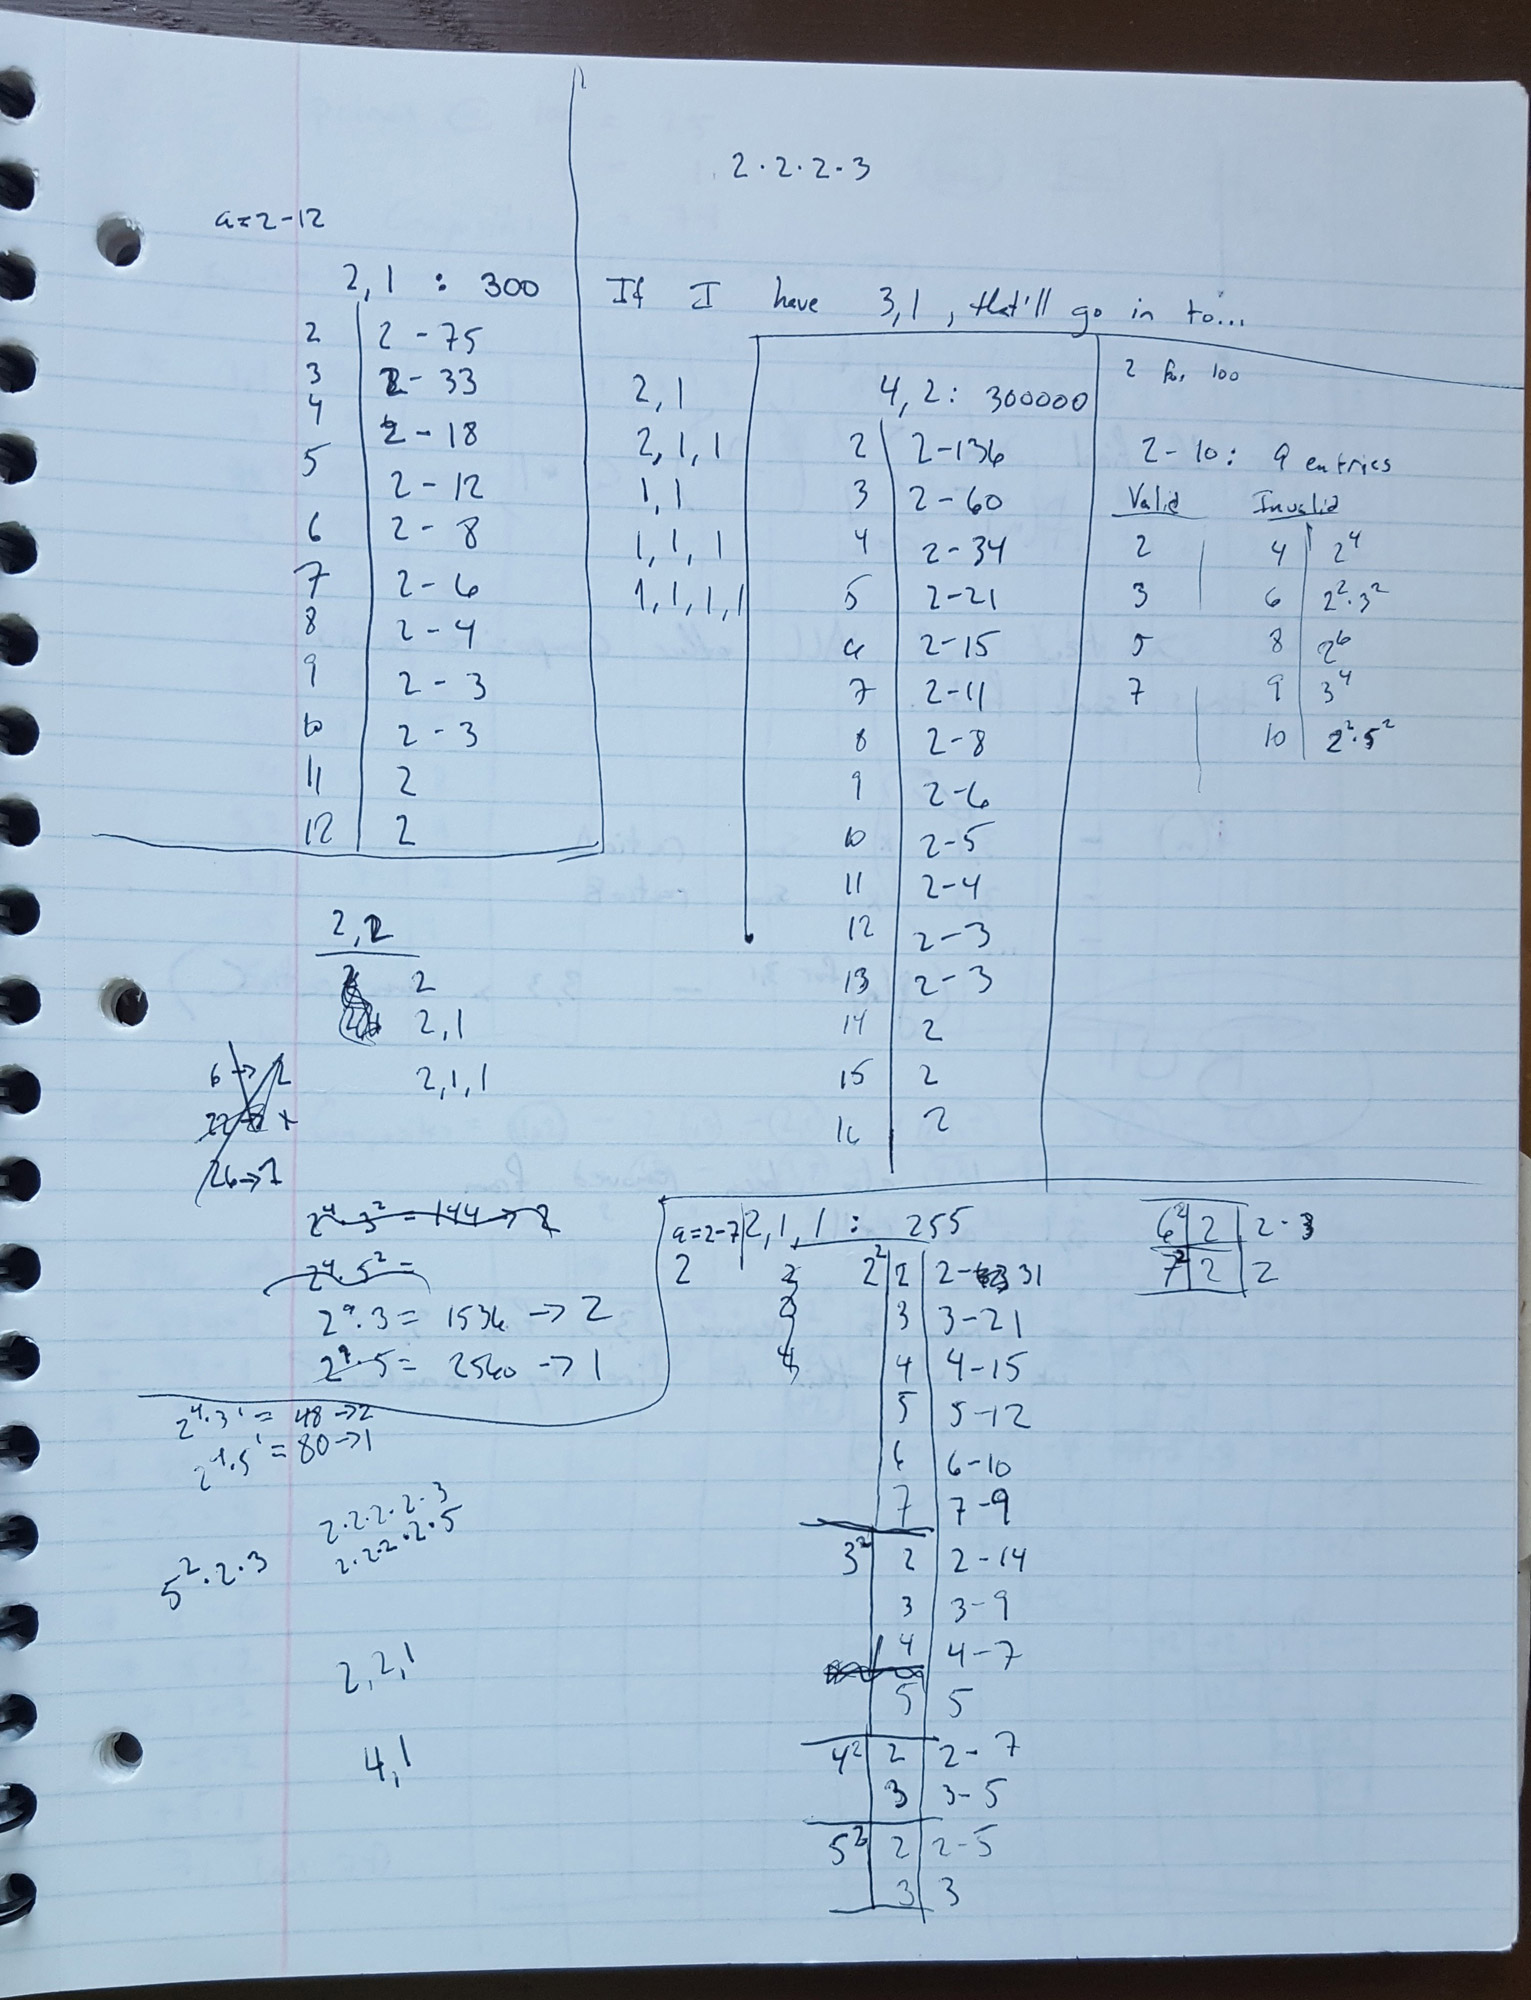 2·2·2·3
a=2-12
2,1 : 300
2 2-75
3 2-33
4 2-18
5 2-12
6 2-8
7 2-6
8 2-4
9 2-3
10 2-3
11 2
12 2
If I have 3,1, that'll go in to...
2,1
2,1,1
1,1
1,1,1
1,1,1,1
4,2: 300000
2 2-136
3 2-60
4 2-34
5 2-21
6 2-15
7 2-11
8 2-8
9 2-6
10 2-5
11 2-4
12 2-3
13 2-3
14 2
15 2
16 2
2 for 100
2-10: 9 entries
Valid Invalid
2 4 2⁴
3 6 2²·3²
5 8 2⁶
7 9 3⁴
10 2²·5²
2,2
2
2,1
2,1,1
6→2
26→1
2⁴·3²=144→2
2⁴·5²=
2⁹·3=1536→2
2⁹·5=2560→1
2⁴·3¹=48→2
2⁴·5¹=80→1
2·2·2·2·3
2·2·2·2·5
5²·2·3
2,2,1
4,1
a=2-7 2,1,1: 255
2 2 2² 2 2-31
3 3 3-21
4 4 4-15
5 5-12
6 6-10
7 7-9
3² 2 2-14
3 3-9
4 4-7
5 5
4² 2 2-7
3 3-5
5² 2 2-5
3 3
6² 2 2-3
7² 2 2